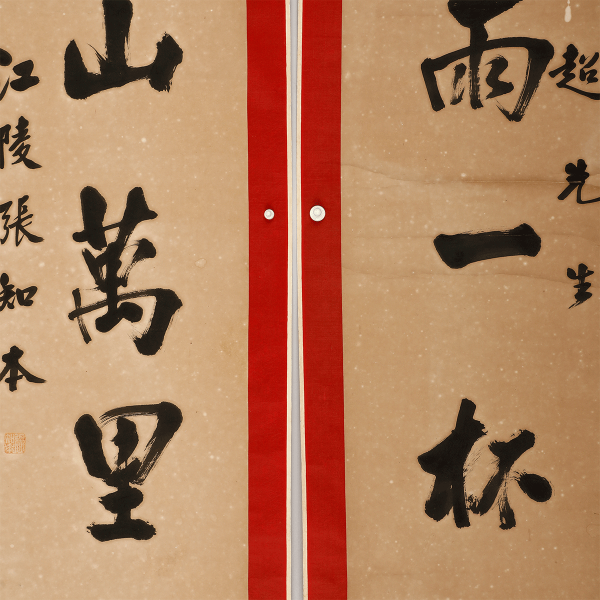 超先生
雨一杯
山萬里
江陵張知本